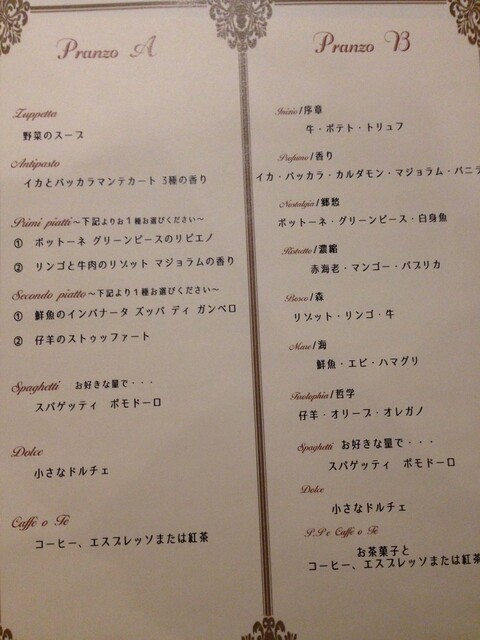 Pranzo A
Zuppetta
野菜のスープ
Antipasto
イカとバッカラマンテカート 3種の香り
Primi piatti ～下記よりお１種お選びください～
① ポットーネ グリーンピースのリピエノ
② リンゴと牛肉のリゾット マジョラムの香り
Secondo piatto ～下記より１種お選びください～
① 鮮魚のインパナータ ズッパ ディ ガンベロ
② 仔羊のストゥッファート
Spaghetti お好きな量で・・・
スパゲッティ ポモドーロ
Dolce
小さなドルチェ
Caffe o Te
コーヒー、エスプレッソまたは紅茶
Pranzo B
Inizio/序章
牛・ポテト・トリュフ
Profumo/香り
イカ・バッカラ・カルダモン・マジョラム・バニラ
Nostalgia/郷愁
ポットーネ・グリーンピース・白身魚
Ristretto/濃縮
赤海老・マンゴー・パプリカ
Bosco/森
リゾット・リンゴ・牛
Mare/海
鮮魚・エビ・ハマグリ
/哲学
仔羊・オリーブ・オレガノ
Spaghetti お好きな量で・・・
スパゲッティ ポモドーロ
Dolce
小さなドルチェ
P.P e Caffe o Te
お茶菓子と
コーヒー、エスプレッソまたは紅茶